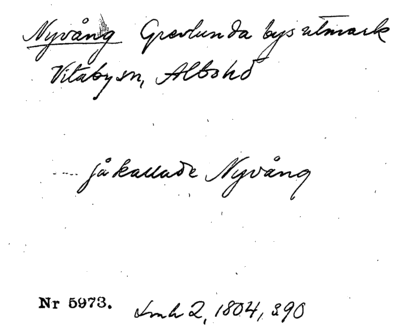 Nyvång Grevlunda bys utmark
Vitaby sn, Albo hd
---- så kallade Nyvång
Nr 5973. Lmh 2, 1804, s 90